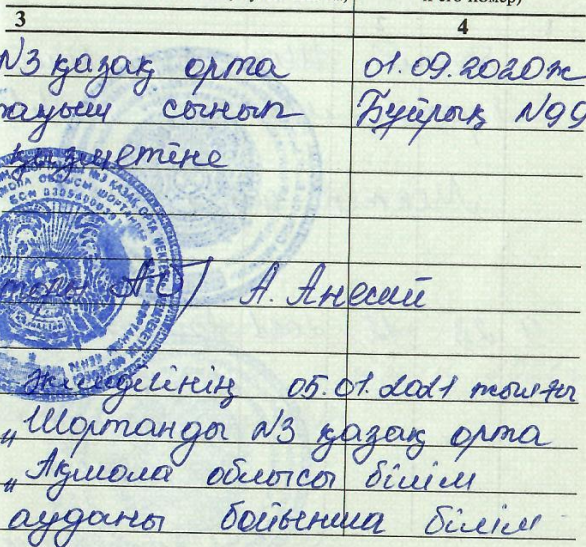 и его номер)
3 4
№3 қазақ орта 01.09.2020ж
тауыш сынып Бұйрық №99
қызметіне
А. Анесий
әкімдігінің 05.01.2021 жылғы
„Шортанды №3 қазақ орта
„Ақмола облысы білім
ауданы бойынша білім